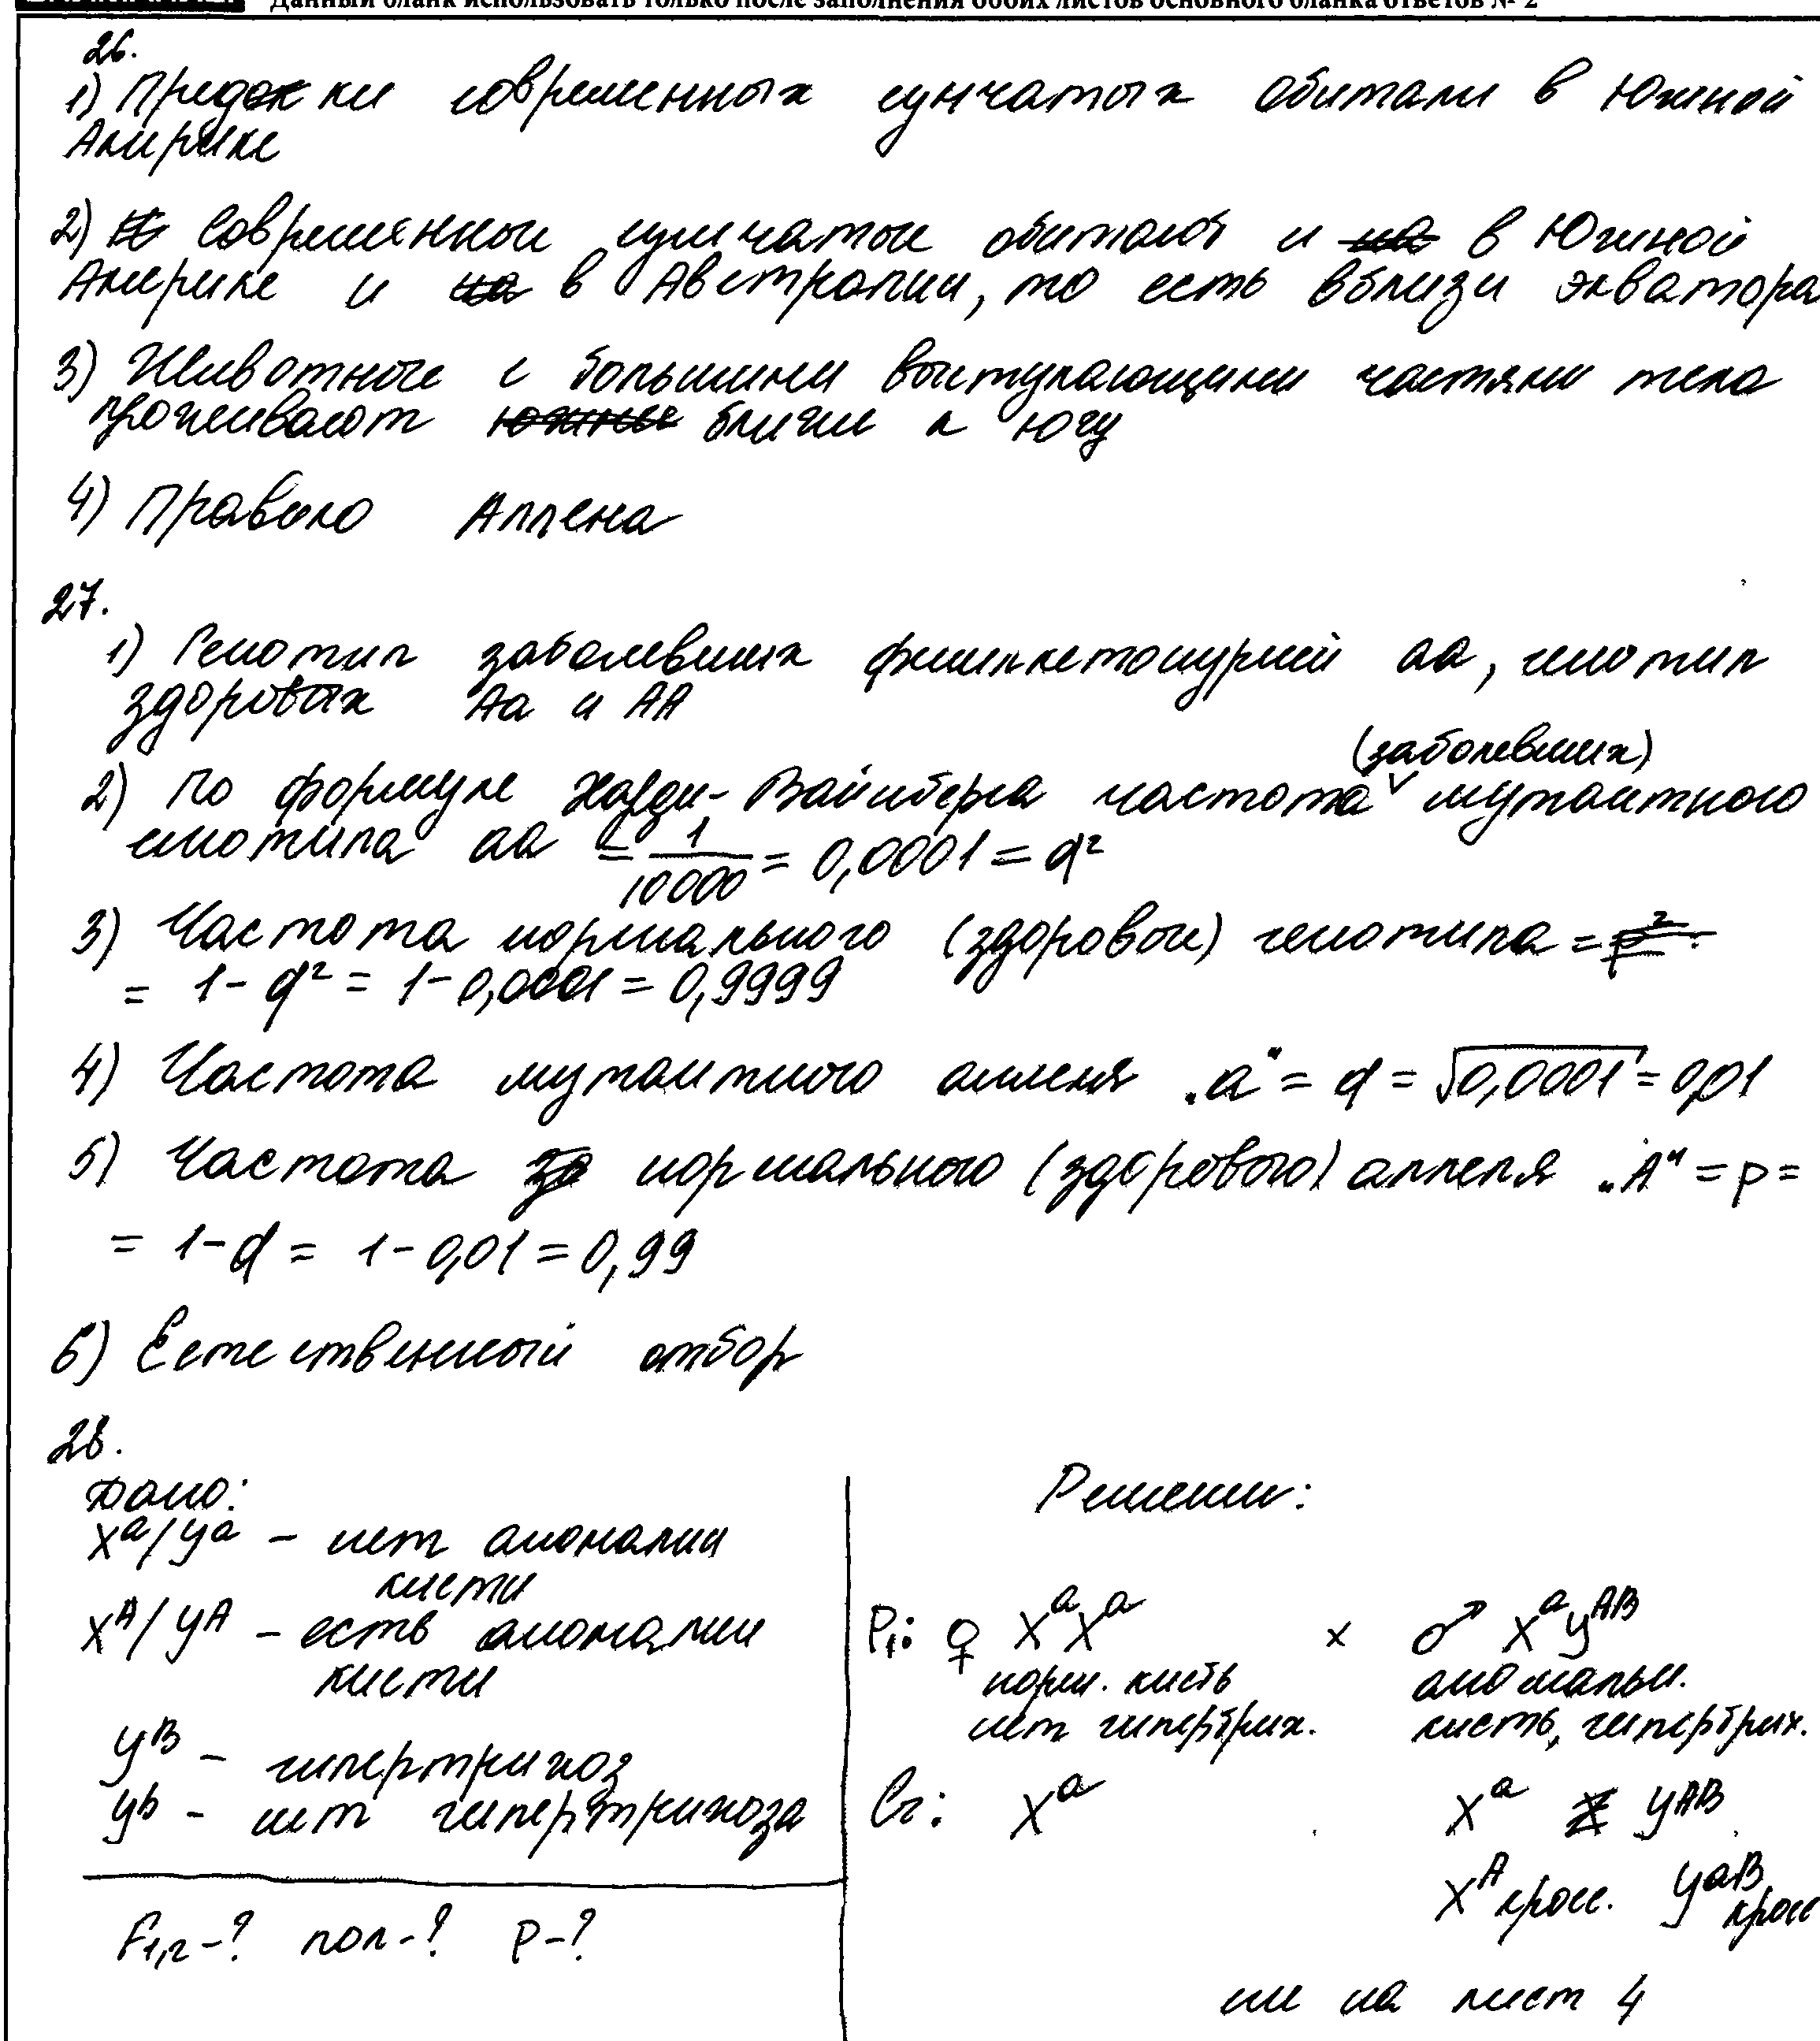 Данный бланк использовать только после заполнения обоих листов основного бланка ответов № 2
26.
1) Предки современных сумчатых обитали в Южной
Америке
2) Современные сумчатые обитают и в Южной
Америке и в Австралии, то есть вблизи экватора
3) Животные с большими выступающими частями тела
проживают ближе к югу
4) Правило Аллена
27.
1) Генотип заболевших фенилкетонурией аа, генотип
здоровых Аа и АА
(заболевших)
2) По формуле Харди-Вайнберга частота мутантного
генотипа аа = 1/10000 = 0,0001 = q²
3) Частота нормального (здоровое) генотипа =
= 1 - q² = 1 - 0,0001 = 0,9999
4) Частота мутантного аллеля „а" = q = √0,0001 = 0,01
5) Частота нормального (здорового) аллеля „А" = p =
= 1 - q = 1 - 0,01 = 0,99
6) Естественный отбор
28.
Дано:
Xᵃ/Yᵃ - нет аномалии
кисти
Xᴬ/Yᴬ - есть аномалии
кисти
Yᴮ - гипертрихоз
Yᵇ - нет гипертрихоза
F₁,₂-? пол-? P-?
Решение:
P₁: ♀ XᵃXᵃ × ♂ XᵃYᴬᴮ
норм. кисть аномальн.
нет гипертрих. кисть, гипертрих.
G: Xᵃ Xᵃ Yᴬᴮ
Xᴬ кросс. Yᵃᴮ кросс
см на лист 4